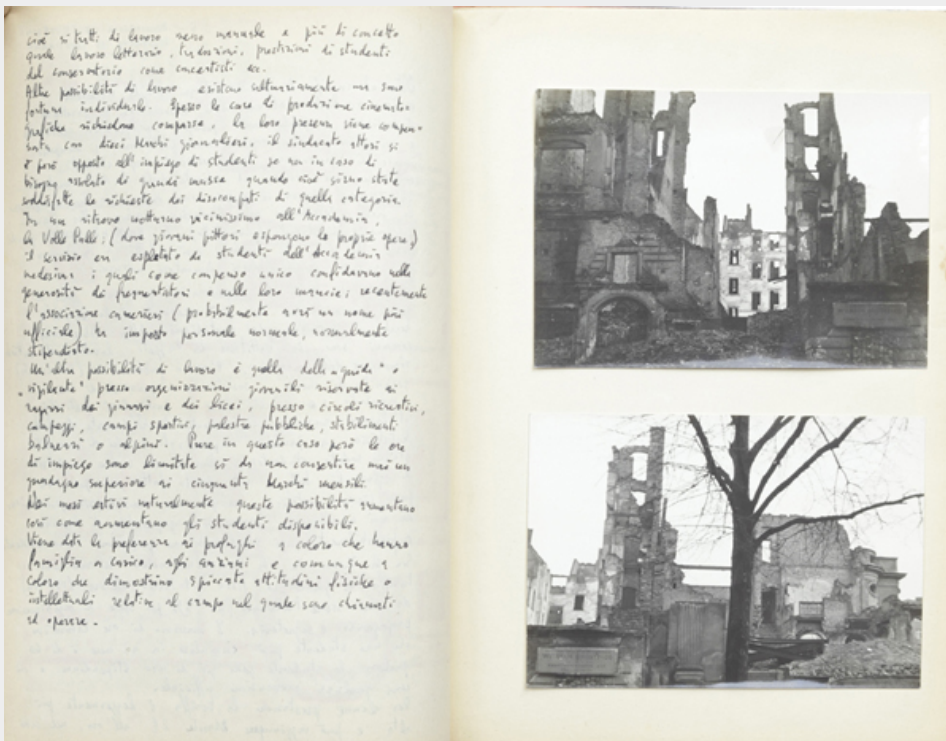 cioè si tratti di lavoro meno manuale e più di concetto
quale lavoro letterario, traduzioni, prestazioni di studenti
del conservatorio come concertisti ecc.
Altre possibilità di lavoro esistono saltuariamente ma sono
fortune individuali. Spesso le case di produzione cinemato-
grafiche richiedono comparse, la loro presenza viene compen-
sata con dieci Marchi giornalieri, il sindacato attori si
è però opposto all'impiego di studenti se non in caso di
bisogno assoluto di grandi masse quando cioè siano state
soddisfatte le richieste dei disoccupati di quella categoria.
In un ritrovo notturno vicinissimo all'Accademia,
(dove giovani pittori espongono le proprie opere)
il servizio era espletato da studenti dell'Accademia
medesima i quali come compenso unico confidavano nella
generosità dei frequentatori o nelle loro mancie; recentemente
l'associazione camerieri (probabilmente avrà un nome più
ufficiale) ha imposto personale normale, normalmente
stipendiato.
Un'altra possibilità di lavoro è quella della "guida" o
"vigilante" presso organizzazioni giovanili riservate ai
ragazzi dei ginnasi e dei licei, presso circoli ricreativi,
campeggi, campi sportivi, palestre pubbliche, stabilimenti
balneari o alpini. Pure in questo caso però le ore
di impiego sono limitate sì da non consentire mai un
guadagno superiore ai cinquanta Marchi mensili.
Nei mesi estivi naturalmente queste possibilità aumentano
così come aumentano gli studenti disponibili.
Viene data la preferenza ai profughi a coloro che hanno
famiglia a carico, agli anziani e comunque a
coloro che dimostrino spiccate attitudini fisiche o
intellettuali relative al campo nel quale sono chiamati
ad operare.